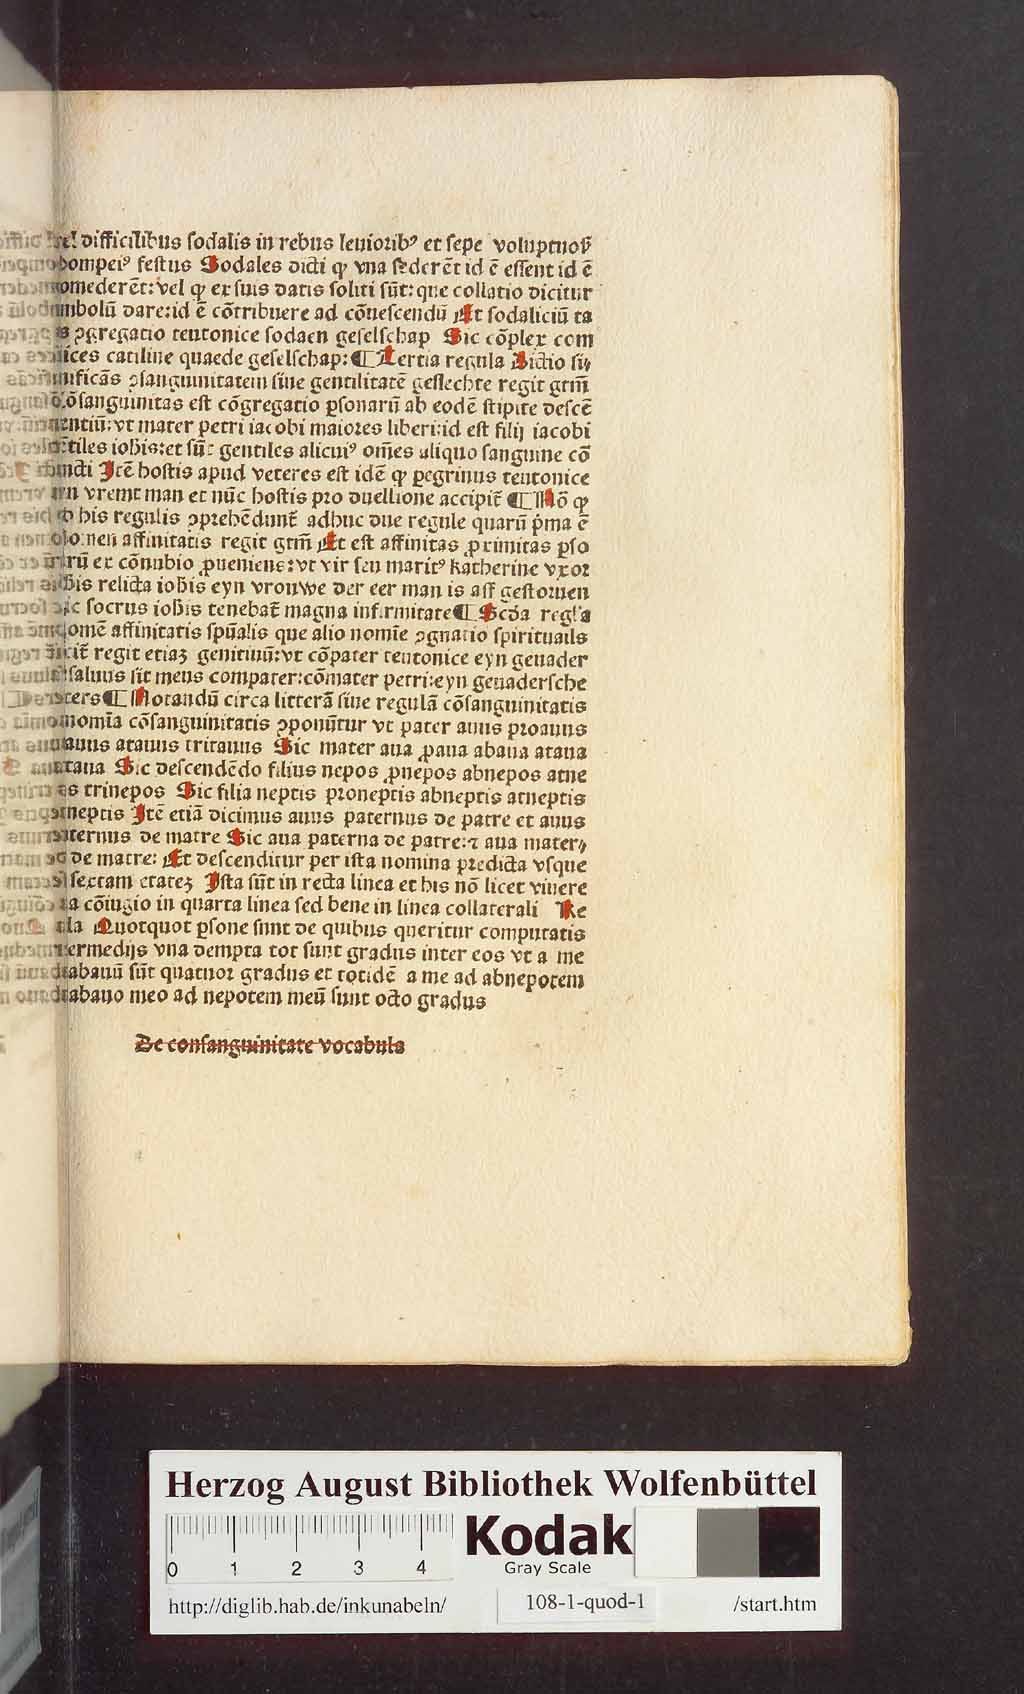 vel difficilibus sodalis in rebus leuioribꝰ et sepe voluptuoſ̄
pompeiꝰ festus Sodales dicti ꝙ vna sederēt id ē essent id ē
comederēt: vel ꝙ ex suis datis soliti sūt: que collatio dicitur
simbolū dare: id ē cōtribuere ad cōuescendū Et sodaliciū ta
ꝯgregatio teutonice sodaen geselschap Sic cōplex com
plices catiline quaede geselschap: ¶ Tertia regula Dictio si⸗
gnificās ꝯsanguinitatem siue gentilitatē geslechte regit gtm̄
cōsanguinitas est cōgregatio ꝑsonarū ab eodē stipite descē
dentiū: vt mater petri iacobi maiores liberi: id est filij iacobi
gētiles ioh̄is: et sūt gentiles alicuiꝰ oīnes aliquo sanguine cō
iuncti Itē hostis apud veteres est idē ꝙ peregrinus teutonice
eyn vremt man et nūc hostis pro duellione accipit̄ ¶ Nō ꝙ
his regulis ꝯprehēdunt̄ adhuc due regule quarū p̄ma ē
nomen affinitatis regit gtm̄ Et est affinitas ꝓximitas ꝑso
narū ex cōnubio ꝓueniens: vt vir seu maritꝰ katherine vxor
ioh̄is relicta ioh̄is eyn vrouwe der eer man is aff gestoruen
sic socrus ioh̄is tenebat̄ magna infirmitate ¶ Scd̄a regl̄a
nomē affinitatis spūalis que alio nomīe ꝯgnatio spirituals
dicit̄ regit etiaꝫ genitiuū: vt cōpater teutonice eyn geuader
saluus sit meus compater: cōmater petri: eyn geuadersche
peters ¶ Notandū circa litterā siue regulā cōsanguinitatis
nomīa cōsanguinitatis ꝯponūtur vt pater auus proauus
abauus atauus tritauus Sic mater aua ꝓaua abaua ataua
tritaua Sic descendēdo filius nepos ꝓnepos abnepos atne
pos trinepos Sic filia neptis proneptis abneptis atneptis
trineptis Itē etiā dicimus auus paternus de patre et auus
maternus de matre Sic aua paterna de patre: ⁊ aua mater⸗
na de matre: Et descenditur per ista nomina predicta vsque
ad sextam etateꝫ Ista sūt in recta linea et his nō licet viuere
in cōiugio in quarta linea sed bene in linea collaterali Re
gula Quotquot ꝑsone sunt de quibus queritur computatis
intermedijs vna dempta tot sunt gradus inter eos vt a me
ad abauū sūt quatuor gradus et totidē a me ad abnepotem
ab abauo meo ad nepotem meū sunt octo gradus
De consanguinitate vocabula
Herzog August Bibliothek Wolfenbüttel
0 1 2 3 4
Kodak
Gray Scale
http://diglib.hab.de/inkunabeln/ 108-1-quod-1 /start.htm